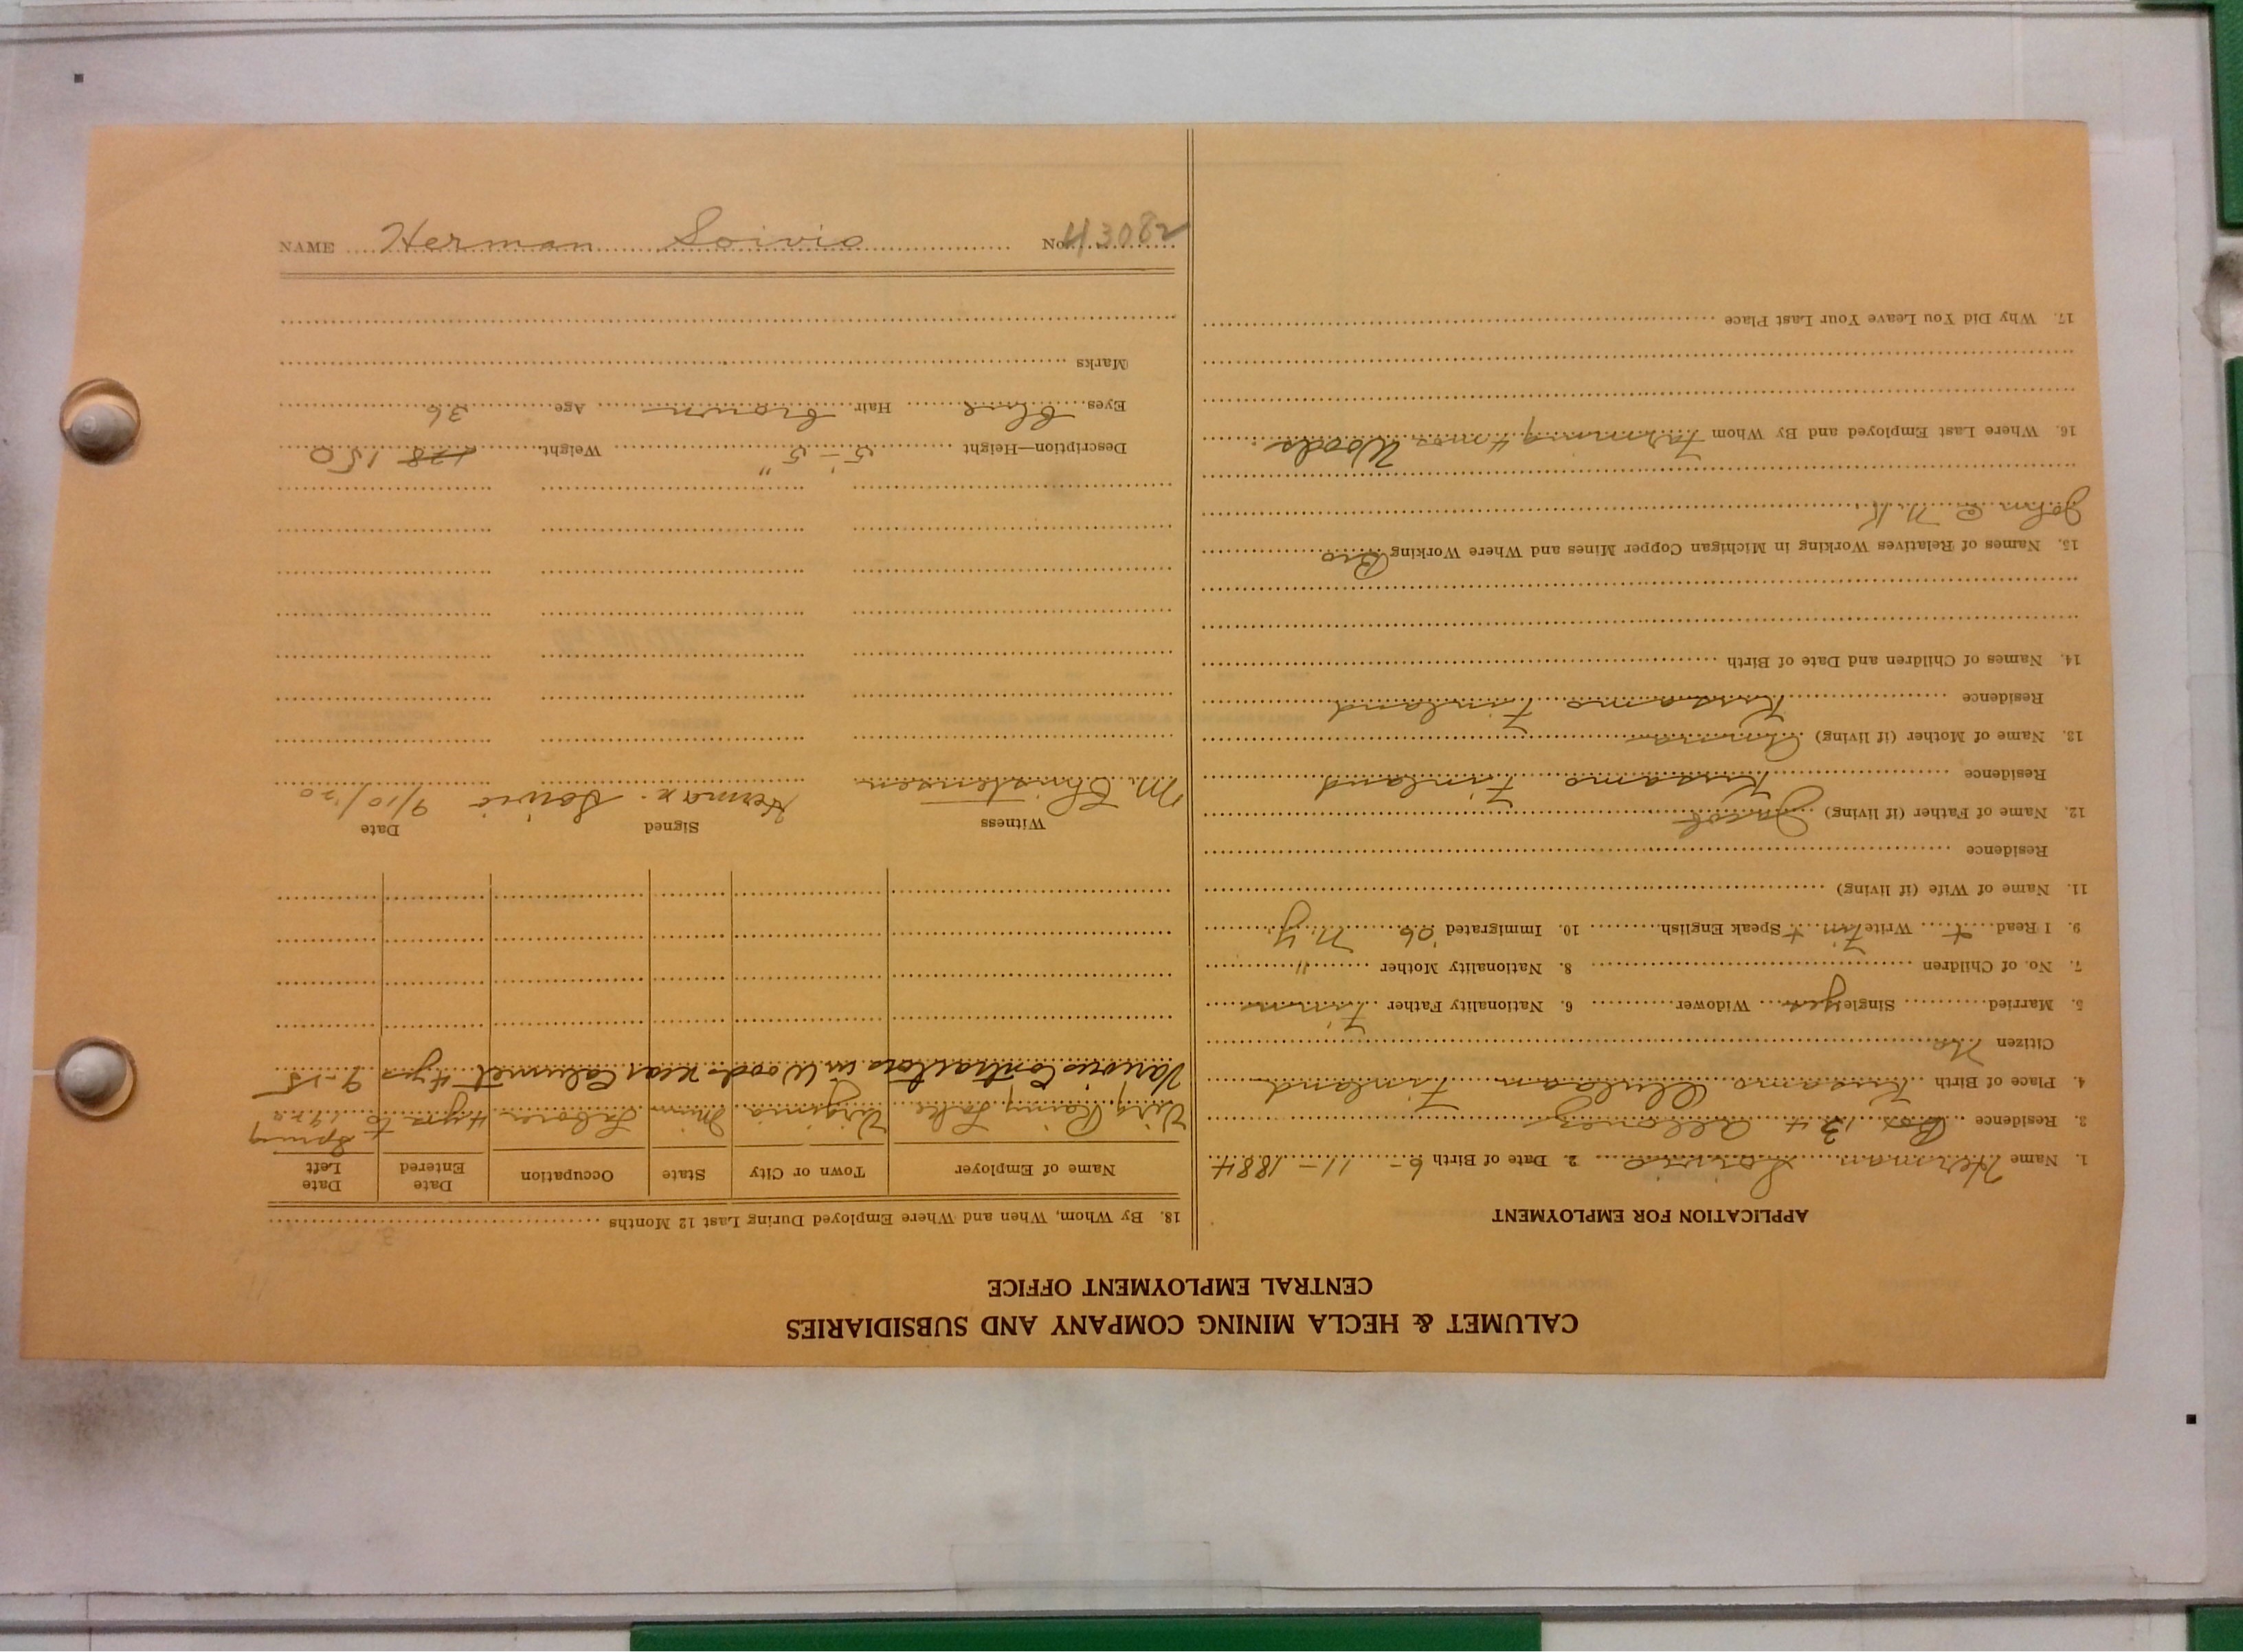 CALUMET & HECLA MINING COMPANY AND SUBSIDIARIES
CENTRAL EMPLOYMENT OFFICE
APPLICATION FOR EMPLOYMENT
1. Name Herman Soivio 2. Date of Birth 6 - 11 - 1884
3. Residence Box 134 Allouez
4. Place of Birth Kusamo Oulun Finland
Citizen No
5. Married Single yes Widower 6. Nationality Father Finn
7. No. of Children 8. Nationality Mother "
9. I Read + Write Finn + Speak English 10. Immigrated '06 N.Y
11. Name of Wife (if living)
Residence
12. Name of Father (if living) Jacob
Residence Kusamo Finland
13. Name of Mother (if living) Anna
Residence Kusamo Finland
14. Names of Children and Date of Birth
15. Names of Relatives Working in Michigan Copper Mines and Where Working Bro
John @ N.K.
16. Where Last Employed and By Whom Farming 4 mos Woods
17. Why Did You Leave Your Last Place
18. By Whom, When and Where Employed During Last 12 Months
Name of Employer Town or City State Occupation Date Entered Date Left
Virg. Rainy Lake Virginia Minn Labor 4 yrs to Spring 1920
Various Contractors in Woods near Calumet 4 yrs 9-15
Witness Signed Date
M. Christensen Herman Soivio 9/10/20
Description—Height 5'-5" Weight 128 150
Eyes Blue Hair brown Age 36
Marks
NAME Herman Soivio No. 43082